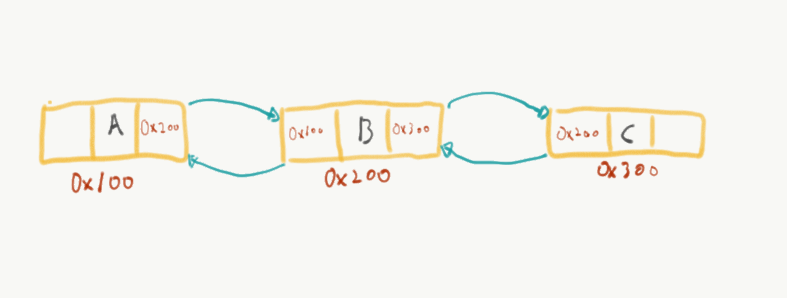 A 0x200
0x100 B 0x300
0x200 C
0x100
0x200
0x300